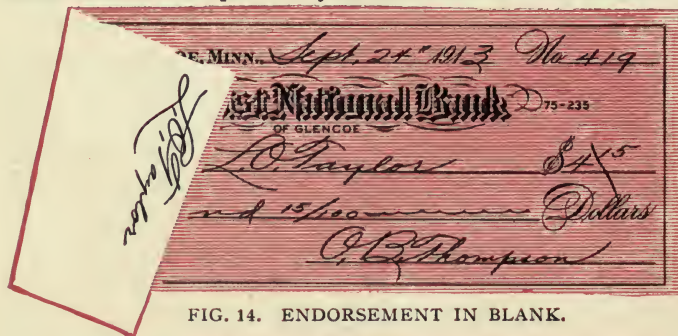 OE, MINN., Sept. 24" 1913 No 419
st National Bank 75-235
OF GLENCOE
L.O. Taylor $4 15
nd 15/100 Dollars
O. B. Thompson
L.O. Taylor
FIG. 14. ENDORSEMENT IN BLANK.